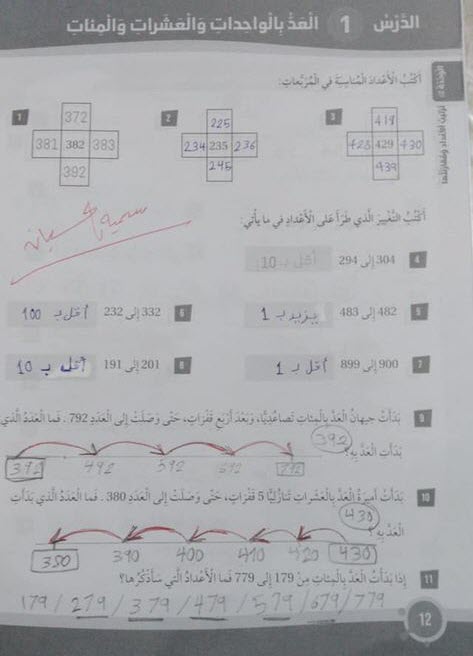 الدَّرْسُ 1 الْعَدُّ بِالْواحِداتِ وَالْعَشَراتِ وَالْمِئاتِ
أَكْتُبُ الْأَعْدادَ الْمُناسِبَةَ في الْمُرَبَّعاتِ:
1
372
381 382 383
392
2
225
234 235 236
245
3
419
428 429 430
439
أَكْتُبُ التَّغْييرَ الَّذي طَرَأَ عَلى الْأَعْدادِ في ما يَأْتي:
4 304 إلى 294 أقل بـ 10
5 482 إلى 483 يزيد بـ 1
6 332 إلى 232 أقل بـ 100
7 900 إلى 899 أقل بـ 1
8 201 إلى 191 أقل بـ 10
9 بَدَأَتْ جيهانُ الْعَدَّ بِالْمِئاتِ تَصاعُدِيًّا، وَبَعْدَ أَرْبَعِ قَفَزاتٍ، حَتّى وَصَلَتْ إِلى الْعَدَدِ 792. فَما الْعَدَدُ الَّذي
بَدَأَتِ الْعَدَّ بِهِ؟ 392
392 492 592 692 792
10 بَدَأَتْ أَميرَةُ الْعَدَّ بِالْعَشَراتِ تَنازُلِيًّا 5 قَفَزاتٍ، حَتّى وَصَلَتْ إِلى الْعَدَدِ 380. فَما الْعَدَدُ الَّذي بَدَأَتِ
الْعَدَّ بِهِ؟ 430
380 390 400 410 420 430
11 إِذا بَدَأْتُ الْعَدَّ بِالْمِئاتِ مِنْ 179 إِلى 779 فَما الْأَعْدادُ الَّتي سَأَذْكُرُها؟
179 / 279 / 379 / 479 / 579 / 679 / 779
12